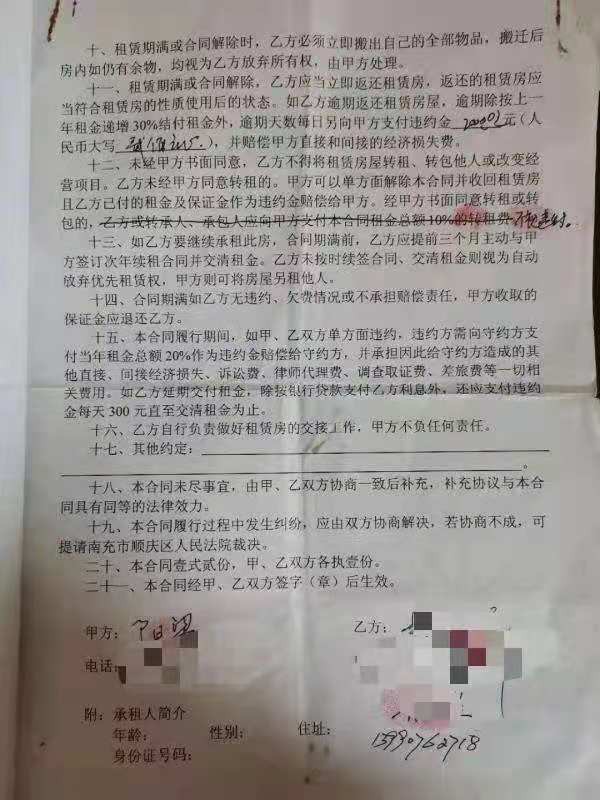 十、租赁期满或合同解除时，乙方必须立即搬出自己的全部物品，搬迁后
房内如仍有余物，均视为乙方放弃所有权，由甲方处理。
十一、租赁期满或合同解除，乙方应当立即返还租赁房，返还的租赁房应
当符合租赁房的性质使用后的状态。如乙方逾期返还租赁房屋，逾期除按上一
年租金递增30%结付租金外，逾期天数每日另向甲方支付违约金 元（人
民币大写 ），并赔偿甲方直接和间接的经济损失费。
十二、未经甲方书面同意，乙方不得将租赁房屋转租、转包他人或改变经
营项目。乙方未经甲方同意转租的。甲方可以单方面解除本合同并收回租赁房
且乙方已付的租金及保证金作为违约金赔偿给甲方。经甲方书面同意转租或转
包的，乙方或转承人、承包人应向甲方支付本合同租金总额10%的转租费
十三、如乙方要继续承租此房，合同期满前，乙方应提前三个月主动与甲
方签订次年续租合同并交清租金。乙方未按时续签合同、交清租金则视为自动
放弃优先租赁权，甲方则可将房屋另租他人。
十四、合同期满如乙方无违约、欠费情况或不承担赔偿责任，甲方收取的
保证金应退还乙方。
十五、本合同履行期间，如甲、乙双方单方面违约，违约方需向守约方支
付当年租金总额20%作为违约金赔偿给守约方，并承担因此给守约方造成的其
他直接、间接经济损失、诉讼费、律师代理费、调查取证费、差旅费等一切相
关费用。如乙方延期交付租金，除按银行贷款支付乙方利息外，还应支付违约
金每天300元直至交清租金为止。
十六、乙方自行负责做好租赁房的交接工作，甲方不负任何责任。
十七、其他约定：
。
十八、本合同未尽事宜，由甲、乙双方协商一致后补充，补充协议与本合
同具有同等的法律效力。
十九、本合同履行过程中发生纠纷，应由双方协商解决，若协商不成，可
提请南充市顺庆区人民法院裁决。
二十、本合同壹式贰份，甲、乙双方各执壹份。
二十一、本合同经甲、乙双方签字（章）后生效。
甲方： 乙方：
电话：
附：承租人简介
年龄： 性别： 住址：
身份证号码： 13990762718